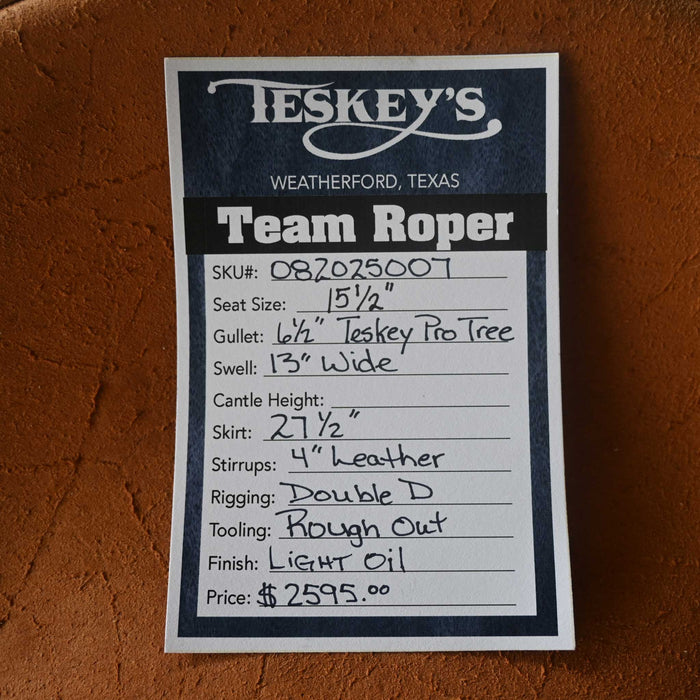 TESKEY'S
WEATHERFORD, TEXAS
Team Roper
SKU#: 082025007
Seat Size: 15 1/2"
Gullet: 6 1/2" Teskey Pro Tree
Swell: 13" Wide
Cantle Height:
Skirt: 27 1/2"
Stirrups: 4" Leather
Rigging: Double D
Tooling: Rough Out
Finish: LIGHT Oil
Price: $2595.00